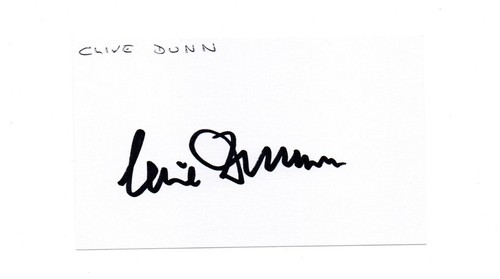 CLIVE DUNN
Clive Dunn